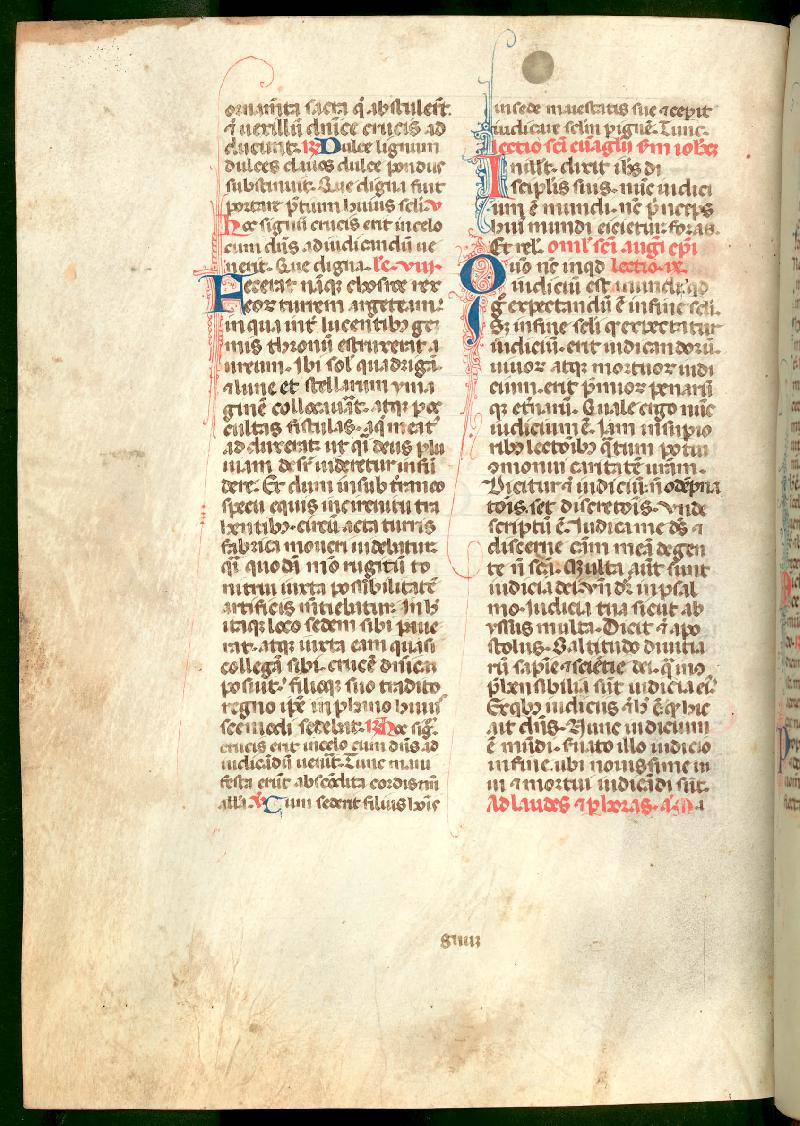 ornam̄ta sacra q̄ abstulerāt.
⁊ uexillū dn̄ice crucis ad
ducunt. R̃ Dulce lignum
dulces clauos dulce pondus
substinuit. Que digna fuit
portare p̄tium huius sc̄li. v̄
hoc signū crucis erit in celo
cum dn̄s ad iudicandū ue
nerit. Que digna. lc̄. viii.
Fecerat nāque chosroe rex
eorz turrem argeteam.
in qua int̄ lucentibꝫ ge
mis thronū extruxerat a
ureum. Ibi solˀ quadrigā
⁊ lune et stellarum yma
ginē collocauāt. atqꝫ p oc
cultas fistulas. aq̄ meatˀ
ad duxerat: ut q̄ī deus plu
uiam desr̄ uideretur infū
dere. Et dum in sub t̄raneo
specu equis in circuitu tra
hentibꝫ. circū acta turris
fabrica moueri uidebatur.
q̄ī quodā mō rugitū to
nitrui iuxta possibilitatē
artificis m̄tiebatur. In hˀ
itaqꝫ loco sedem sibi paue
rat. atqꝫ iuxta eam quasi
collegā sibi. crucē dn̄icā
posuit. filioqꝫ suo tradito
regno ip̄e in phano huiusˀ
scemodi sedebat. R̃ Hoc sig̃.
crucis erit in celo cum dn̄s ad
iudicādū uen̄it. Tunc mani
festa erūt abscōdita cordis nr̄i
all̄a. v̄ Cum sederit filius hoīs
in sede maiestatis sue ⁊ cepit
iudicare sclm̄ p ignē. Tunc.
Lectio sc̄i euāgl̄ii s̄m ioh̄ez
In illˀt. dixit ih̄s di
scipl̄is suis. nūc iudici
um ē mundi. nc̄ p̄nceps
huiˀ mundi eicietur foras.
Et relˀ. omīl sc̄i augˀi ep̄i
Quō nc̄ inqd̄ lectio ix.
iudicium est mundi. qd
ḡ expectandū ē in fine sc̄li.
Sꝫ in fine sc̄li q̄ expectatur
iudiciū. erit iudicandorū.
uiuor atqꝫ mortuor iudi
cium. erit p̄mior penarū
qꝫ et̄narū. Quale ergo nūc
iudicium ē. Iam in supio
ribꝫ lectōibꝫ q̄tum potui
ōmonui caritatē ur̄am.
Dicitur ⁊ iudiciū: n̄ odēpna
tōis. set discretōis. Vnde
scriptū ē. Iudica me ds̄ ⁊
discerne cām meā de gen
te n̄ sc̄a. Multa aūt sunt
iudicia dei. vn̄ dr̄ in psal
mo. Iudicia tua sicut ab
yssus multa. Dicit ⁊ apo
stolus. O altitudo diuitia
rū sapīe ⁊ sciētie dei. q̄ ino
p̄hensibilia sūt iudicia eiˀ.
Ex qˀbꝫ iudiciis ⁊ hˀ ē q̄ hic
ait dn̄s. Nunc iudicium
ē mūdi. suato illo iudicio
in fine. ubi nouissime ui
ui ⁊ mortui iudicādi sūt.
Ad laudes ⁊ p horas. a.
giiii